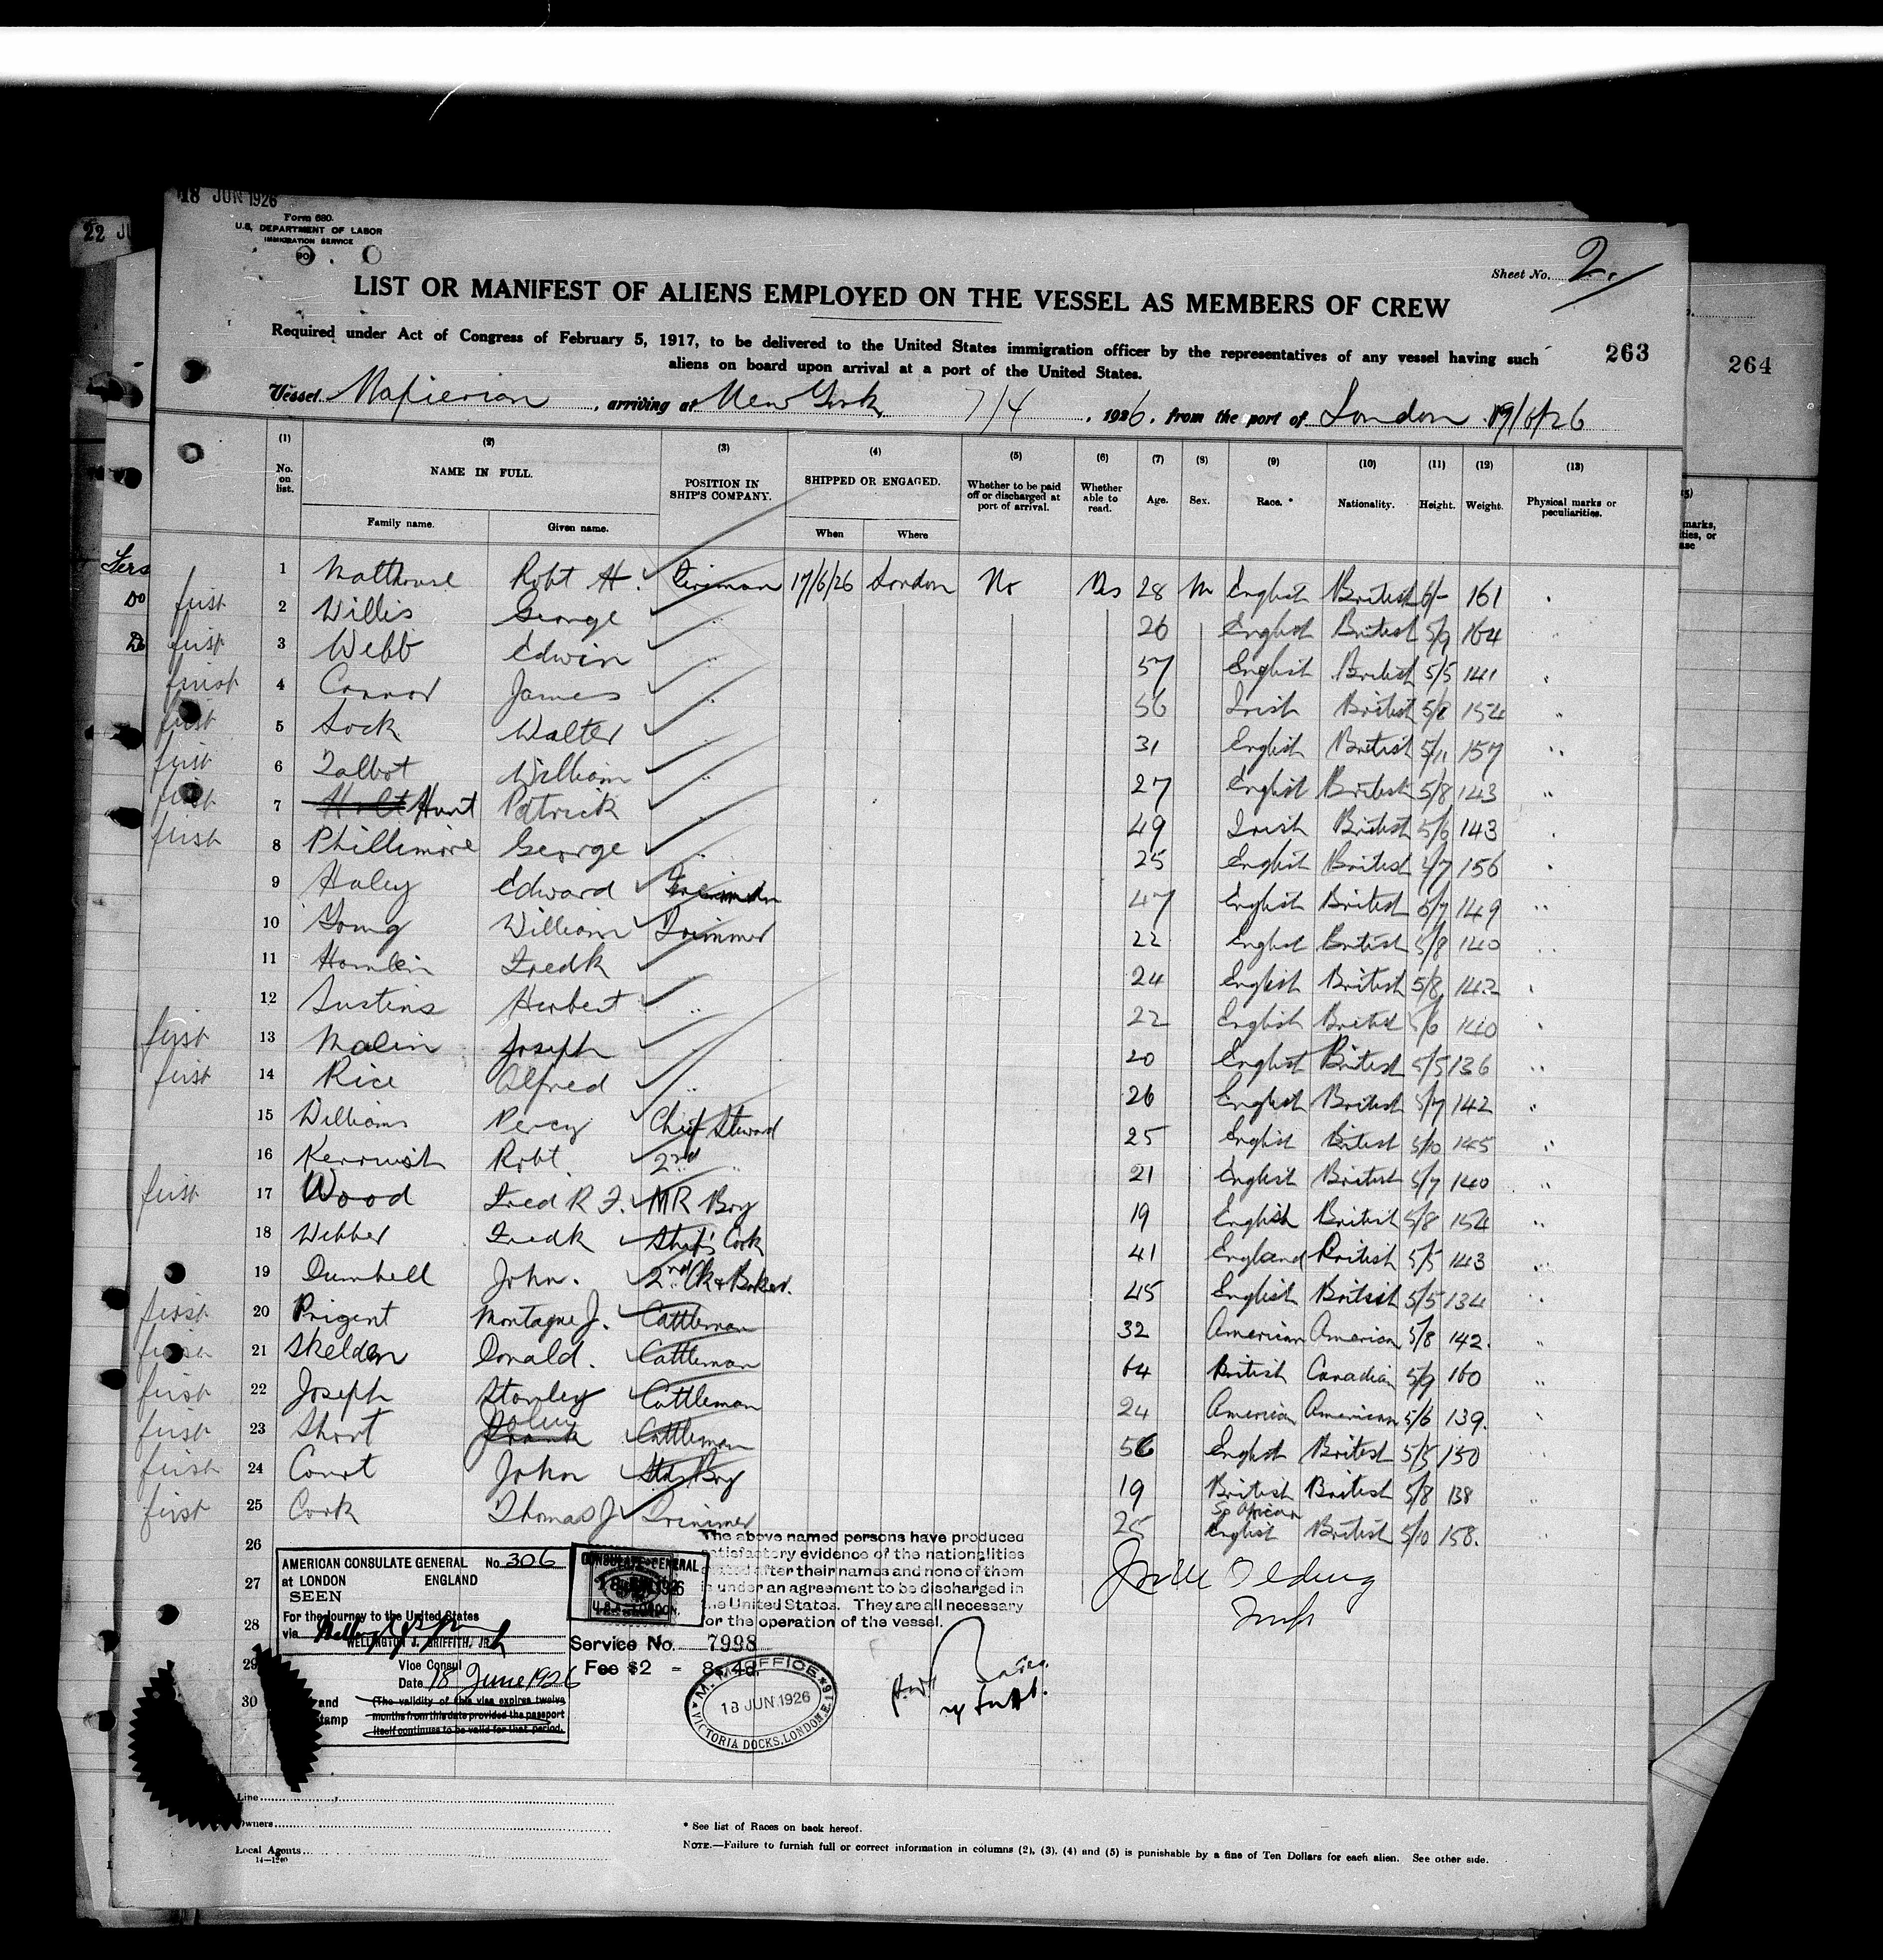 18 JUN 1926
22 JU
Form 680.
U.S. DEPARTMENT OF LABOR
IMMIGRATION SERVICE
Sheet No. 2.
LIST OR MANIFEST OF ALIENS EMPLOYED ON THE VESSEL AS MEMBERS OF CREW
Required under Act of Congress of February 5, 1917, to be delivered to the United States immigration officer by the representatives of any vessel having such
aliens on board upon arrival at a port of the United States.
263
264
Vessel , arriving at New York 7/4 , 1926, from the port of London 19/6/26
(1) (2) (3) (4) (5) (6) (7) (8) (9) (10) (11) (12) (13)
No. on list. NAME IN FULL. POSITION IN SHIP'S COMPANY. SHIPPED OR ENGAGED. Whether to be paid off or discharged at port of arrival. Whether able to read. Age. Sex. Race.* Nationality. Height. Weight. Physical marks or peculiarities.
Family name. Given name. When Where
1 Malthouse Robt H. Fireman 17/6/26 London No Yes 28 M English British 6/- 161
Do first 2 Willis George " 26 English British 5/9 164
Do first 3 Webb Edwin " 57 English British 5/5 141
first 4 Connor James " 56 Irish British 5/8 154
first 5 Lock Walter " 31 English British 5/11 157
first 6 Talbot William " 27 English British 5/8 143
first 7 Holt Hunt Patrick " 49 Irish British 5/6 143
first 8 Phillimore George " 25 English British 5/7 156
9 Haley Edward 47 English British 5/7 149
10 Young William Trimmer 22 English British 5/8 140
11 Hamlin Fredk " 24 English British 5/8 142
12 Herbert " 22 English British 5/6 140
first 13 Malin Joseph " 20 English British 5/5 136
first 14 Rice Alfred " 26 English British 5/7 142
15 Williams Percy Chief Steward 25 English British 5/10 145
16 Kerruish Robt. 2nd " 21 English British 5/7 140
first 17 Wood Fred R F. MR Boy 19 English British 5/8 154
18 Webber Fredk Ship's Cook 41 England British 5/5 143
19 Dumbell John. 2nd Ck & Baker. 45 English British 5/5 134
first 20 Prigent Montague J. Cattleman 32 American American 5/8 142.
first 21 Skelden Donald. Cattleman 64 British Canadian 5/9 160
first 22 Joseph Stanley Cattleman 24 American American 5/6 139.
first 23 Short Frank Cattleman 56 English British 5/5 150
first 24 Court John Boy 19 British British 5/8 138
first 25 Cook Thomas J Trimmer 25 So African English British 5/10 158.
26
27
28
29
30
AMERICAN CONSULATE GENERAL No. 306
at LONDON ENGLAND
SEEN
For the journey to the United States
via
WELLINGTON J. GRIFFITH, JR.
Vice Consul
Date 18 June 1926
(The validity of this visa expires twelve
months from this date provided the passport
itself continues to be valid for that period.
and
tamp
CONSULATE GENERAL
18 JUN 1926
U.S.A. LONDON.
The above named persons have produced
satisfactory evidence of the nationalities
stated after their names and none of them
is under an agreement to be discharged in
the United States. They are all necessary
for the operation of the vessel.
Service No. 7998
Fee $2 = 8s. 4d.
M.M. OFFICE
18 JUN 1926
VICTORIA DOCKS, LONDON. E. 16
Line
Owners
Local Agents
14—1240
* See list of Races on back hereof.
NOTE.—Failure to furnish full or correct information in columns (2), (3), (4) and (5) is punishable by a fine of Ten Dollars for each alien. See other side.